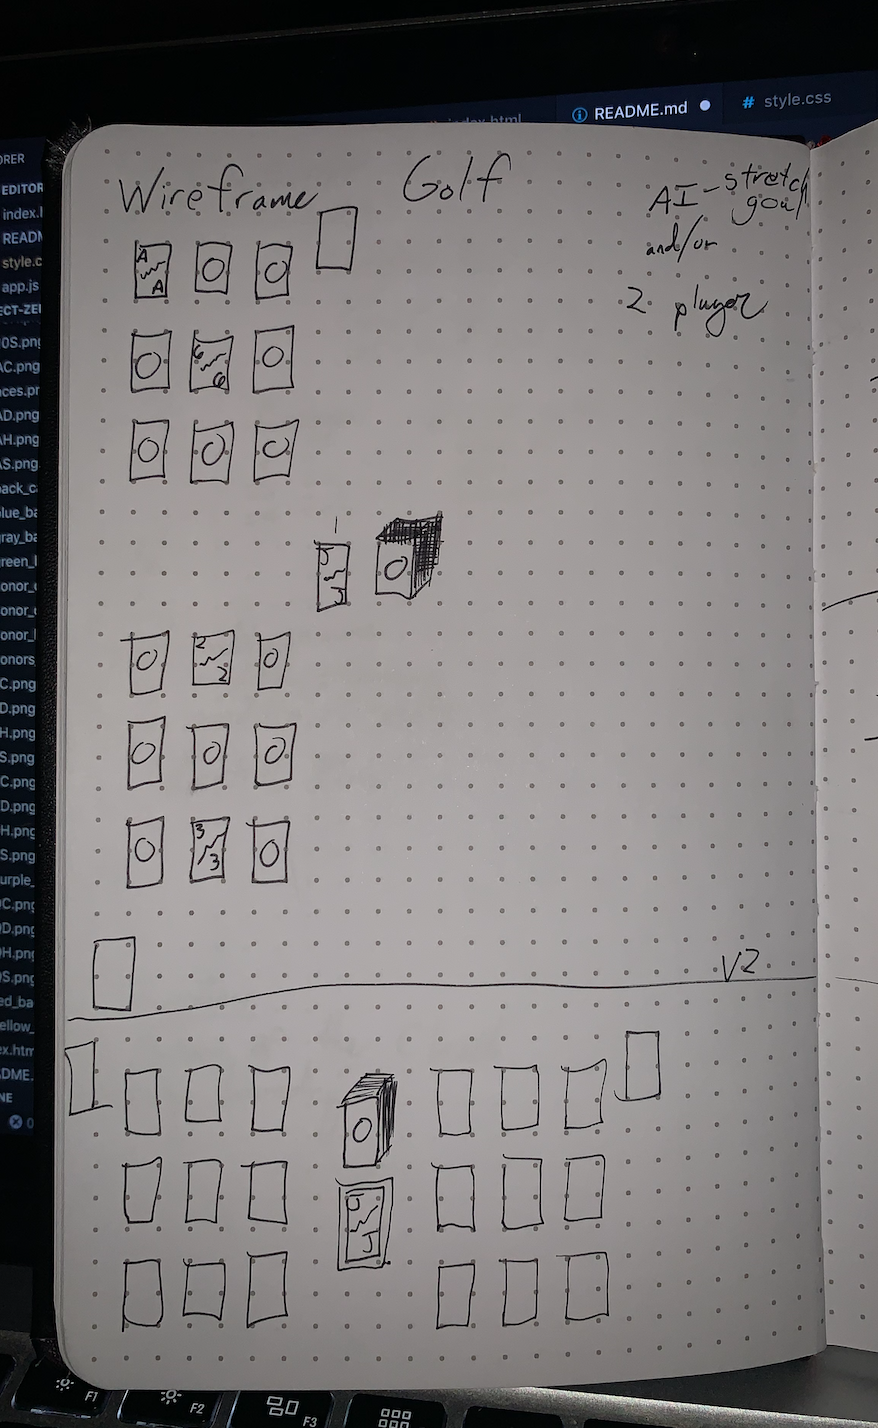 index.html
README.md
# style.css
ORER
EDITOR
index.h
READM
style.c
app.js
ECT-ZE
0S.png
AC.png
aces.pn
AD.png
AH.png
AS.png
back_c
blue_ba
gray_ba
green_l
onor_
onor_
onor_l
onors
C.png
D.png
H.png
S.png
C.png
D.png
H.png
S.png
urple_
QC.png
QD.png
QH.png
QS.png
ed_ba
ellow_
ex.htm
DME.
NE
0
Wireframe
Golf
AI - stretch
goal
and/or
2 player
A
A
6
6
J
J
2
2
3
3
V2
J
J
F1
F2
F3